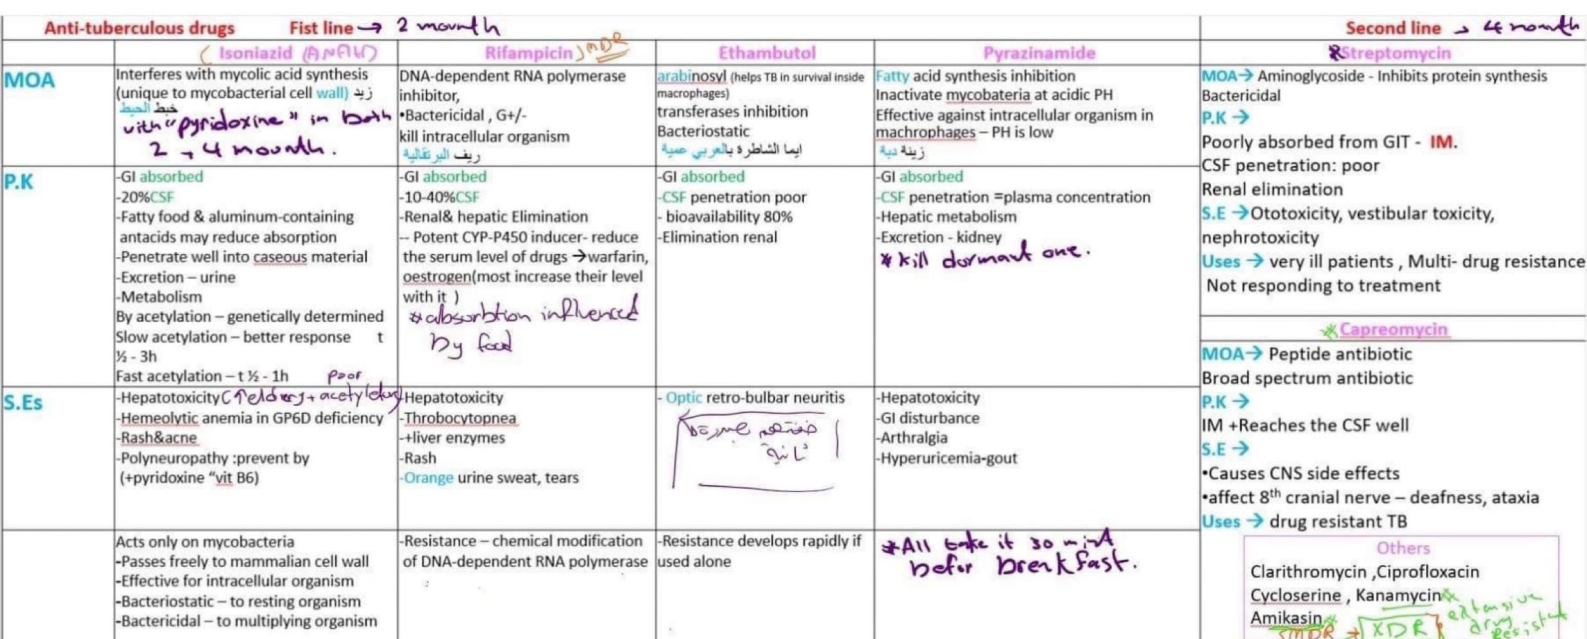 Anti-tuberculous drugs Fist line → 2 mounth
Second line → 4 month
Isoniazid
Rifampicin) MDR
Ethambutol
Pyrazinamide
MOA
Interferes with mycolic acid synthesis
(unique to mycobacterial cell wall) زيد
خبط الحيط
with "pyridoxine" in both
2 → 4 mounth.
DNA-dependent RNA polymerase
inhibitor,
•Bactericidal , G+/-
kill intracellular organism
ريف البرتقالية
arabinosyl (helps TB in survival inside
macrophages)
transferases inhibition
Bacteriostatic
ايما الشاطرة بالعربي عمية
Fatty acid synthesis inhibition
Inactivate mycobateria at acidic PH
Effective against intracellular organism in
machrophages – PH is low
زينة دبة
P.K
-GI absorbed
-20%CSF
-Fatty food & aluminum-containing
antacids may reduce absorption
-Penetrate well into caseous material
-Excretion – urine
-Metabolism
By acetylation – genetically determined
Slow acetylation – better response t
½ - 3h
Fast acetylation – t ½ - 1h poor
-GI absorbed
-10-40%CSF
-Renal& hepatic Elimination
-- Potent CYP-P450 inducer- reduce
the serum level of drugs →warfarin,
oestrogen(most increase their level
with it )
*absorbtion influenced
by food
-GI absorbed
-CSF penetration poor
- bioavailability 80%
-Elimination renal
-GI absorbed
-CSF penetration =plasma concentration
-Hepatic metabolism
-Excretion - kidney
* kill dormant one.
S.Es
-Hepatotoxicity
-Hemeolytic anemia in GP6D deficiency
-Rash&acne
-Polyneuropathy :prevent by
(+pyridoxine "vit B6)
Hepatotoxicity
-Throbocytopnea
-+liver enzymes
-Rash
-Orange urine sweat, tears
- Optic retro-bulbar neuritis
-Hepatotoxicity
-GI disturbance
-Arthralgia
-Hyperuricemia-gout
Acts only on mycobacteria
-Passes freely to mammalian cell wall
-Effective for intracellular organism
-Bacteriostatic – to resting organism
-Bactericidal – to multiplying organism
-Resistance – chemical modification
of DNA-dependent RNA polymerase
-Resistance develops rapidly if
used alone
*All take it 30 mint
befor breakfast.
Streptomycin
MOA→ Aminoglycoside - Inhibits protein synthesis
Bactericidal
P.K →
Poorly absorbed from GIT - IM.
CSF penetration: poor
Renal elimination
S.E →Ototoxicity, vestibular toxicity,
nephrotoxicity
Uses → very ill patients , Multi- drug resistance
Not responding to treatment
*Capreomycin
MOA→ Peptide antibiotic
Broad spectrum antibiotic
P.K →
IM +Reaches the CSF well
S.E →
•Causes CNS side effects
•affect 8th cranial nerve – deafness, ataxia
Uses → drug resistant TB
Others
Clarithromycin ,Ciprofloxacin
Cycloserine , Kanamycin*
Amikasin*
MDR → XDR
extensive
drug
resistat